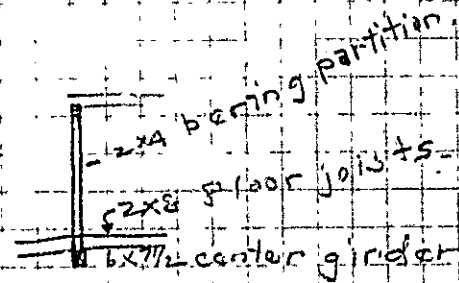 2x4 bering partition.
2x8 floor joists.
6x7 1/2 center girder